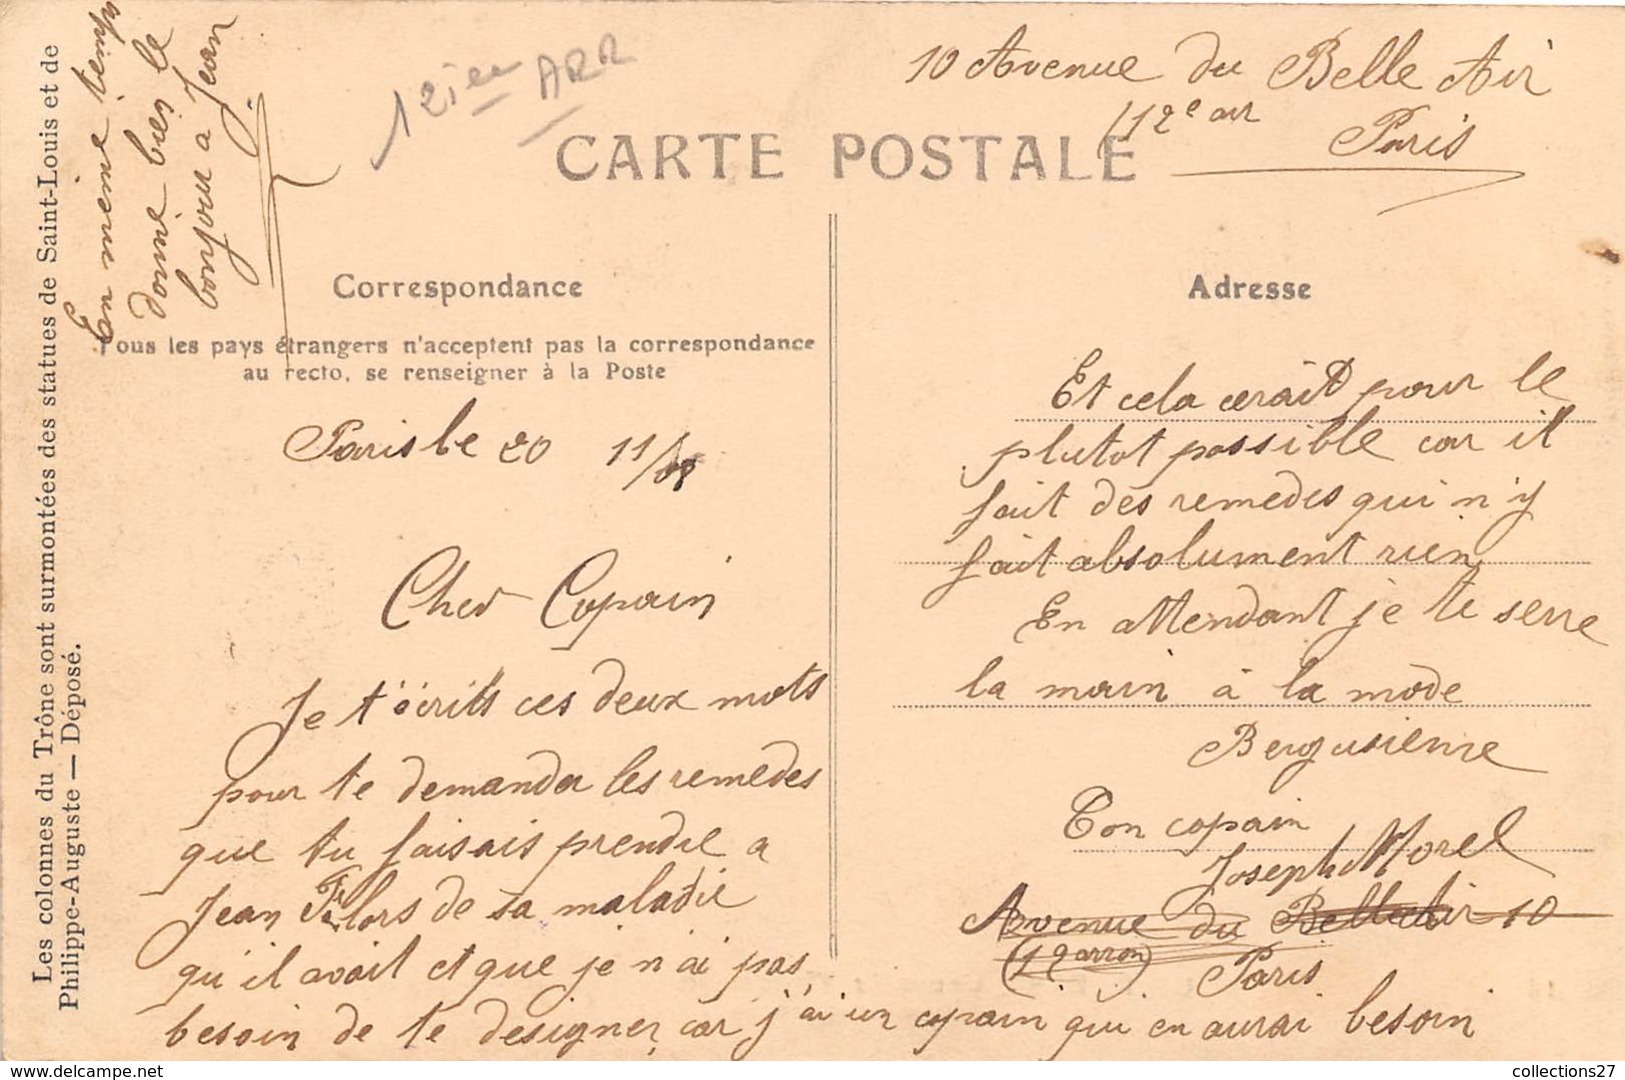 10 Avenue du Belle Air
(12e arr
Paris
12ieme ARR
CARTE POSTALE
En même temps
donne bies le
bonjour a Jean
Les colonnes du Trône sont surmontées des statues de Saint-Louis et de
Philippe-Auguste — Déposé.
Correspondance
Tous les pays étrangers n'acceptent pas la correspondance
au recto, se renseigner à la Poste
Paris le 20 11/
Cher Copain
Je t'écrits ces deux mots
pour te demander les remedes
que tu faisais prendre a
Jean lors de sa maladie
qu'il avait et que je n'ai pas
besoin de te designer car j'ai un copain qui en aurai besoin
Adresse
Et cela cerait pour le
plutot possible car il
fait des remedes qui n'y
fait absolument rien
En attendant je te serre
la main à la mode
Bergusienne
Ton copain
Joseph Morel
Avenue du Belle Air 10
(12 arron)
Paris
collections27